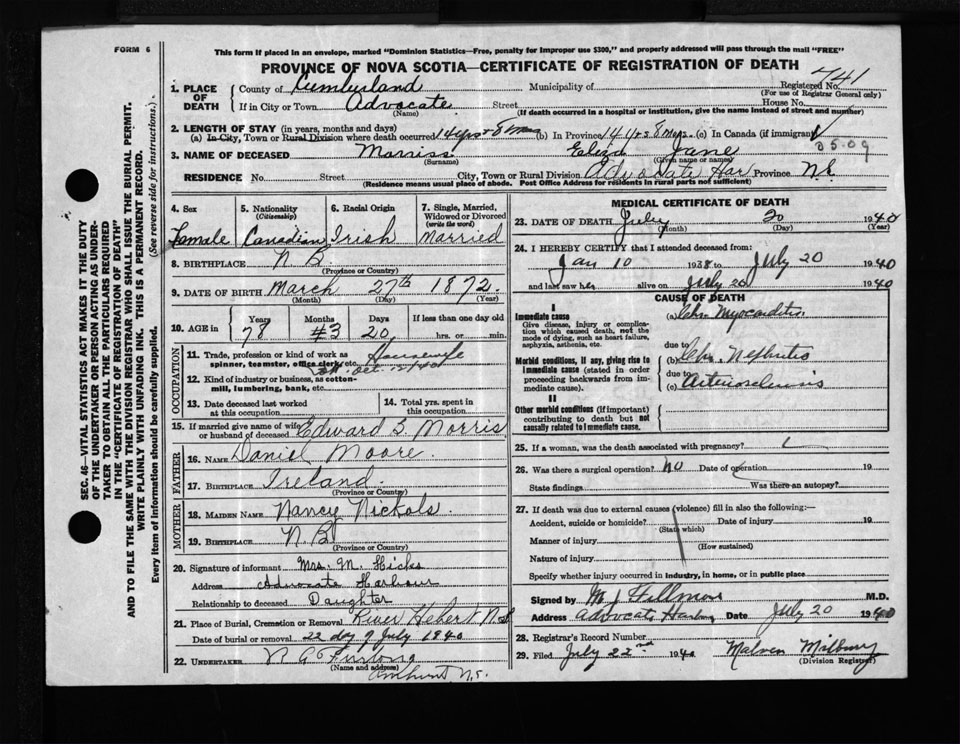 FORM 6
This form if placed in an envelope, marked "Dominion Statistics—Free, penalty for improper use $300," and properly addressed will pass through the mail "FREE"
PROVINCE OF NOVA SCOTIA—CERTIFICATE OF REGISTRATION OF DEATH
741
1. PLACE OF DEATH
County of Cumberland Municipality of Registered No.
(For use of Registrar General only)
If in City or Town Advocate Street House No.
(Name) (If death occurred in a hospital or institution, give the name instead of street and number)
2. LENGTH OF STAY (in years, months and days)
(a) In City, Town or Rural Division where death occurred 14 yrs + 8 mos (b) In Province 14 yrs 8 mos. (c) In Canada (if immigrant)
3. NAME OF DECEASED Morriss Eliza Jane
(Surname) (Given name or names)
0509
RESIDENCE No. Street City, Town or Rural Division Advocate Har Province N.S.
(Residence means usual place of abode. Post Office Address for residents in rural parts not sufficient)
4. Sex
Female
5. Nationality
(Citizenship)
Canadian
6. Racial Origin
Irish
7. Single, Married, Widowed or Divorced
(write the word)
Married
8. BIRTHPLACE N B
(Province or Country)
9. DATE OF BIRTH March 27th 1872.
(Month) (Day) (Year)
10. AGE in
Years Months Days If less than one day old
78 #3 20 hrs. or min.
OCCUPATION
11. Trade, profession or kind of work as spinner, teamster, office clerk, etc. Housewife
12. Kind of industry or business, as cotton-mill, lumbering, bank, etc.
13. Date deceased last worked at this occupation
14. Total yrs. spent in this occupation
15. If married give name of wife or husband of deceased Edward S. Morris
FATHER
16. NAME Daniel Moore.
17. BIRTHPLACE Ireland
(Province or Country)
MOTHER
18. MAIDEN NAME Nancy Nickols.
19. BIRTHPLACE N.B.
(Province or Country)
20. Signature of informant Mrs. M. Hicks
Address Advocate Harbour
Relationship to deceased Daughter
21. Place of Burial, Cremation or Removal River Hebert N.S.
Date of burial or removal 22 day of July 1940
22. UNDERTAKER
(Name and address)
Amherst N.S.
MEDICAL CERTIFICATE OF DEATH
23. DATE OF DEATH July 20 1940
(Month) (Day) (Year)
24. I HEREBY CERTIFY that I attended deceased from:
Jan 10 1938 to July 20 1940
and last saw her alive on July 20 1940
CAUSE OF DEATH
I
Immediate cause
Give disease, injury or complication which caused death, not the mode of dying, such as heart failure, asphyxia, asthenia, etc.
(a) Chr. Myocarditis
due to
Morbid conditions, if any, giving rise to immediate cause (stated in order proceeding backwards from immediate cause).
(b) Chr. Nephritis
due to
(c) Arteriosclerosis
II
Other morbid conditions (if important) contributing to death but not causally related to immediate cause.
25. If a woman, was the death associated with pregnancy?
26. Was there a surgical operation? No Date of operation 19
State findings Was there an autopsy?
27. If death was due to external causes (violence) fill in also the following:—
Accident, suicide or homicide? Date of injury 19
(State which)
Manner of injury
(How sustained)
Nature of injury
Specify whether injury occurred in industry, in home, or in public place
Signed by M J Fillmore M.D.
Address Advocate Harbour Date July 20 1940
28. Registrar's Record Number
29. Filed July 22nd 1940 Malven Milbury
(Division Registrar)
SEC. 46—VITAL STATISTICS ACT MAKES IT THE DUTY
OF THE UNDERTAKER OR PERSON ACTING AS UNDER-
TAKER TO OBTAIN ALL THE PARTICULARS REQUIRED
IN THE "CERTIFICATE OF REGISTRATION OF DEATH"
AND TO FILE THE SAME WITH THE DIVISION REGISTRAR WHO SHALL ISSUE THE BURIAL PERMIT.
WRITE PLAINLY WITH UNFADING INK. THIS IS A PERMANENT RECORD.
Every item of information should be carefully supplied. (See reverse side for instructions.)